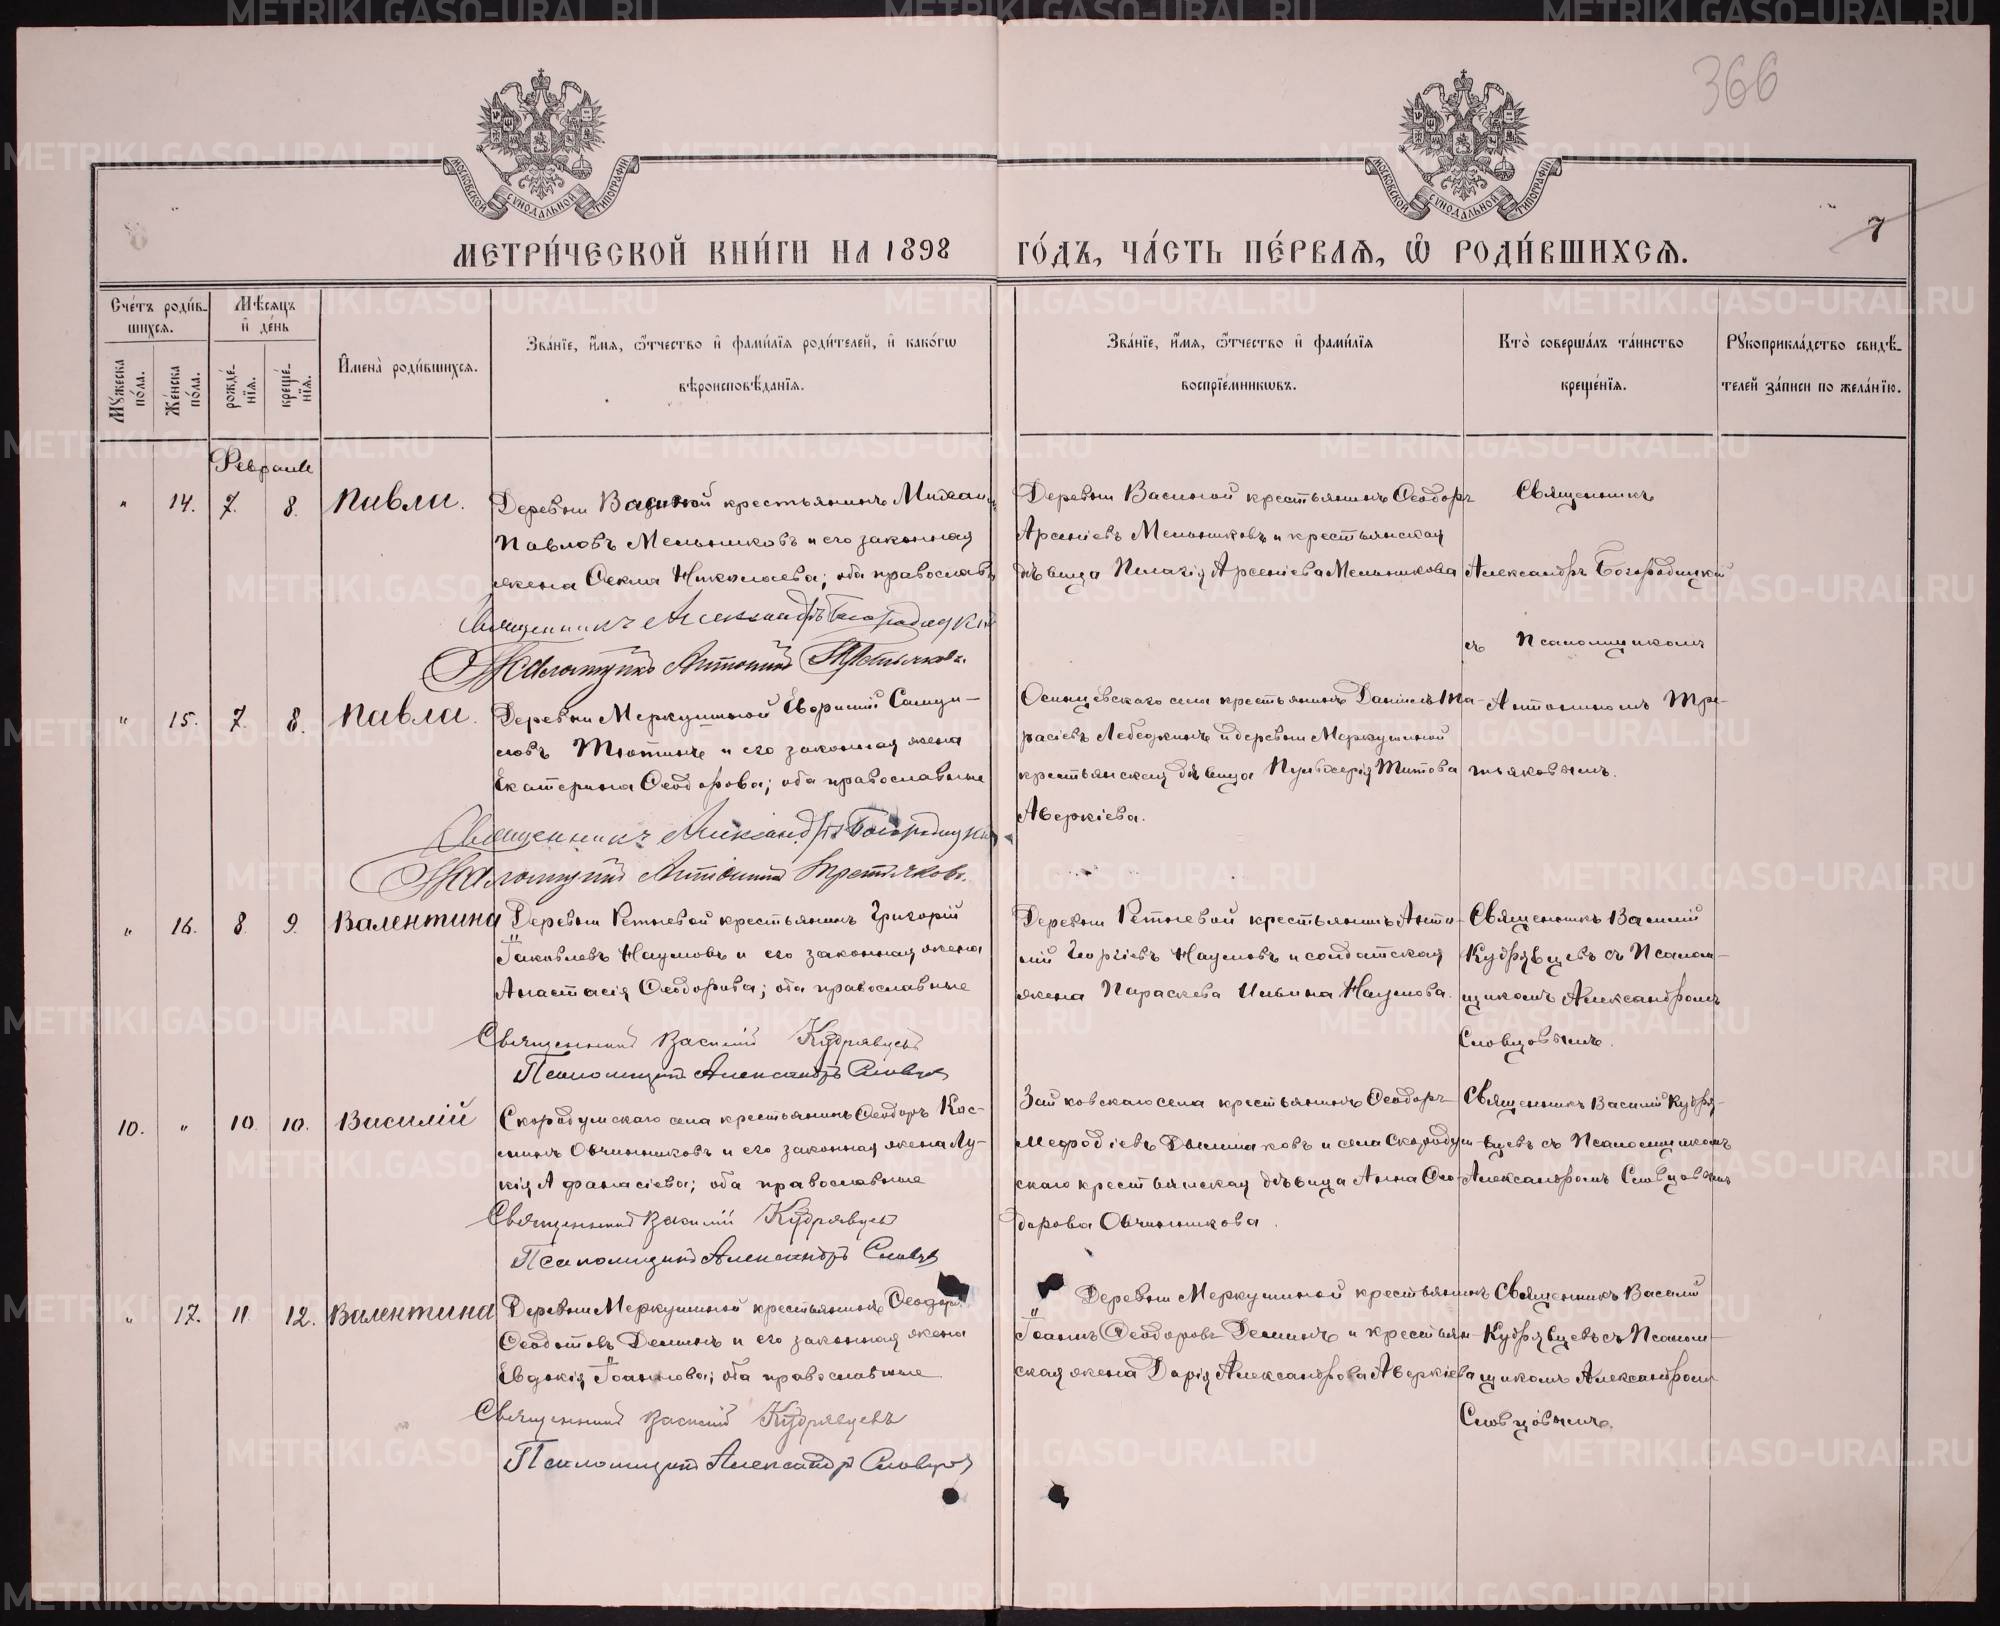 366
7
МЕТРИ́ЧЕСКОЙ КНИ́ГИ НА 1898 ГО́ДЪ, ЧА́СТЬ ПЕ́РВАѦ, Ѿ РОДИ́ВШИХСѦ.
МОСКОВСКОЙ СѴНОДАЛЬНОЙ ТИПОГРАФІИ
МОСКОВСКОЙ СѴНОДАЛЬНОЙ ТИПОГРАФІИ
Сче́тъ роди́в-
шихсѧ.
Мꙋ́жеска по́ла.
Же́нска по́ла.
Мѣ́сѧцъ
и҆ де́нь
рожде́-
нїѧ.
креще́-
нїѧ.
И҆мена̀ роди́вшихсѧ.
Зва́нїе, и҆́мѧ, ѻ҆́тчество и҆ фами́лїѧ роди́телей, и҆ како́гѡ
вѣроисповѣ́данїѧ.
Зва́нїе, и҆́мѧ, ѻ҆́тчество и҆ фами́лїѧ
воспрїе́мникѡвъ.
Кто̀ соверша́лъ та́инство
креще́нїѧ.
Рꙋкоприкла́дство свидѣ́-
телей за́писи по жела́нїю.
Февраль
" 14. 7. 8. Павла.
Деревни Васиной крестьянинъ Михаилъ
Павловъ Мельниковъ и его законная
жена Ѳекла Николаева; оба православн
Священникъ Александръ Богородицкій
Псаломщикъ Антоній Третьяковъ.
Деревни Васиной крестьянинъ Ѳеодоръ
Арсеніевъ Мельниковъ и крестьянская
дѣвица Пелагія Арсеніева Мельникова
Священникъ
Александръ Богородицкій
съ Псаломщикомъ
Антоніномъ Тре-
тьяковымъ.
" 15. 7. 8. Павла.
Деревни Меркушиной Евгеній Самуи-
ловъ Тютинъ и его законная жена
Екатерина Ѳеодорова; оба православные
Священникъ Александръ Богородицкій
Псаломщикъ Антоній Третьяковъ.
Осинцевскаго села крестьянинъ Даніилъ Та-
расіевъ Лебедкинъ и деревни Меркушиной
крестьянская дѣвица Пульхерія Титова
Аверкіева.
" 16. 8. 9. Валентина
Деревни Ретневой крестьянинъ Григорій
Іаковлевъ Наумовъ и его законная жена
Анастасія Ѳеодорова; оба православные
Священникъ Василій Кудрявцевъ
Псаломщикъ Александръ Словцов
Деревни Ретневой крестьянинъ Анто-
ній Георгіевъ Наумовъ и солдатская
жена Параскева Ильина Наумова.
Священникъ Василій
Кудрявцевъ съ Псалом-
щикомъ Александромъ
Словцовымъ.
10. " 10. 10. Василій
Скородумскаго села крестьянинъ Ѳеодоръ Кос-
минъ Овчинниковъ и его законная жена Лу-
кія Аѳанасіева; оба православные
Священникъ Василій Кудрявцевъ
Псаломщикъ Александръ Словцов
Зайковскаго села крестьянинъ Ѳеодоръ
Меѳодіевъ Дымшаковъ и села Скородум-
скаго крестьянская дѣвица Анна Ѳео-
дорова Овчинникова.
Священникъ Василій Кудря-
вцевъ съ Псаломщикомъ
Александромъ Словцовымъ
" 17. 11. 12. Валентина
Деревни Меркушиной крестьянинъ Ѳеодоръ
Ѳеодотовъ Деминъ и его законная жена
Евдокія Іоаннова; оба православные
Священникъ Василій Кудрявцевъ
Псаломщикъ Александръ Словцов
Деревни Меркушиной крестьянинъ
Іоаннъ Ѳеодоровъ Деминъ и крестьян-
ская жена Дарія Александрова Аверкіева
Священникъ Василій
Кудрявцевъ съ Псалом-
щикомъ Александромъ
Словцовымъ.
METRIKI.GASO-URAL.RU